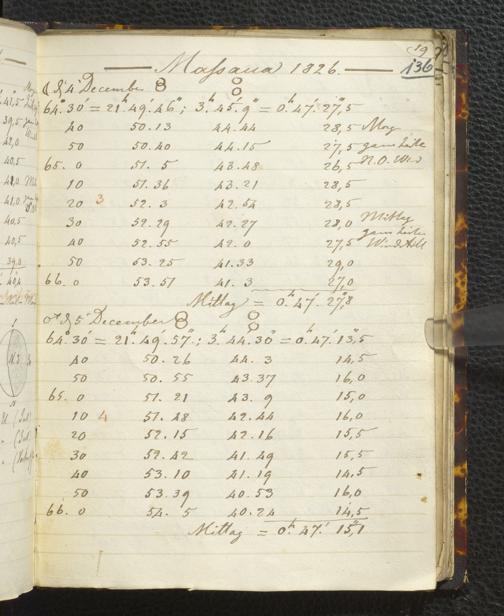 19
136
Massaua 1826.
d. 4 December
64° 30' = 21h. 49'. 46"; 3h. 45. 9" = 0h. 47' 27,5
40 50. 13 44. 44 28,5 Morg
50 50. 40 44. 15 27,5 ganz heiter
65. 0 51. 5 43. 48 26,5 N.O. Wind
10 51. 36 43. 21 28,5
20 3 52. 3 42. 54 28,5
30 52. 29 42. 27 28,0 Mittag
40 52. 55 42. 0 27,5 ganz heiter
50 53. 25 41. 33 29,0
66. 0 53. 51 41. 3 27,0
Mittag = 0h. 47'. 27,8
d. 5 December
64. 30' = 21h. 49'. 57"; 3h. 44. 30" = 0h. 47'. 13,5
40 50. 26 44. 3 14,5
50 50. 55 43. 37 16,0
65. 0 51. 21 43. 9 15,0
10 4 51. 48 42. 44 16,0
20 52. 15 42. 16 15,5
30 52. 42 41. 49 15,5
40 53. 10 41. 19 14,5
50 53. 39 40. 53 16,0
66. 0 54. 5 40. 24 14,5
Mittag = 0h. 47'. 15,1